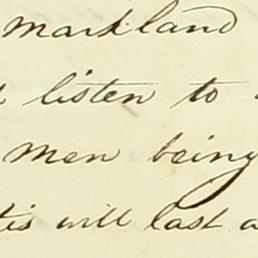 markland
listen to
men being
tis will last a